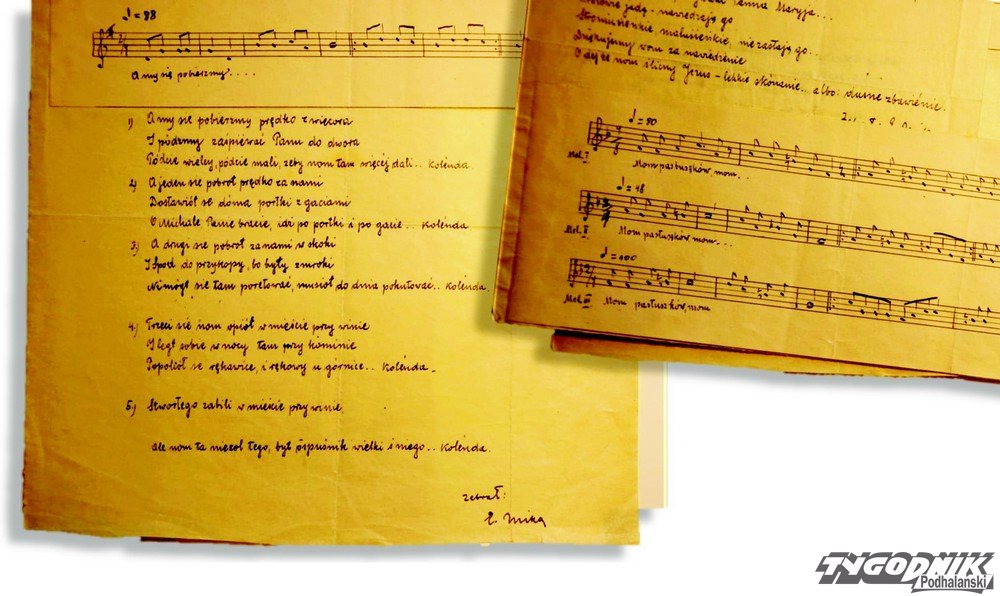 ♩=88
A my się pobierzmy. . . . .
1) A my się pobierzmy prędko z wiecora
I pódźmy zaśpiéwać Panu do dwora
Pódźcie wielcy, pódźcie mali, zeby nom tam więcéj dali.. Kolenda.
2) A jeden sie pobroł prędko za nami
Dostawiół se doma portki z gaciami
O Michále Panie bracie, idź po portki i po gacie... Kolenda
3) A drugi sie pobroł za nami w skoki
I Spod do przykopy, bo były zmroki
Ni mógł się tam poretować, musioł do dnia pokutować.. Kolenda
4.) Trzeci sie nom opiół w mieście przy winie
I legł sobie w nocy tam przy kominie
Popolół se rękawice, i rękowy u górnice... Kolenda.
5.) Stwortego zabili w mieście przy winie,
ale nom ta niezol tego, był wielki śniego.. Kolenda.
zebrał:
E. Mika
Panna Maryja...
nawiedzają go
Stomusieńkie malusieńkie, nie zastają go...
Dziękujemy wom za nawiedzenie
O dejze nom śliczny Jezus - lekkie skonanie... albo: dusne zbawienie.
♩=80
Mel. I
Mom pastuszków mom. .
♩=48
Mel. II
Mom pastuszków mom. . .
♩=100
Mel. III
Mom pastuszków, mom
TYGODNIK
Podhalański